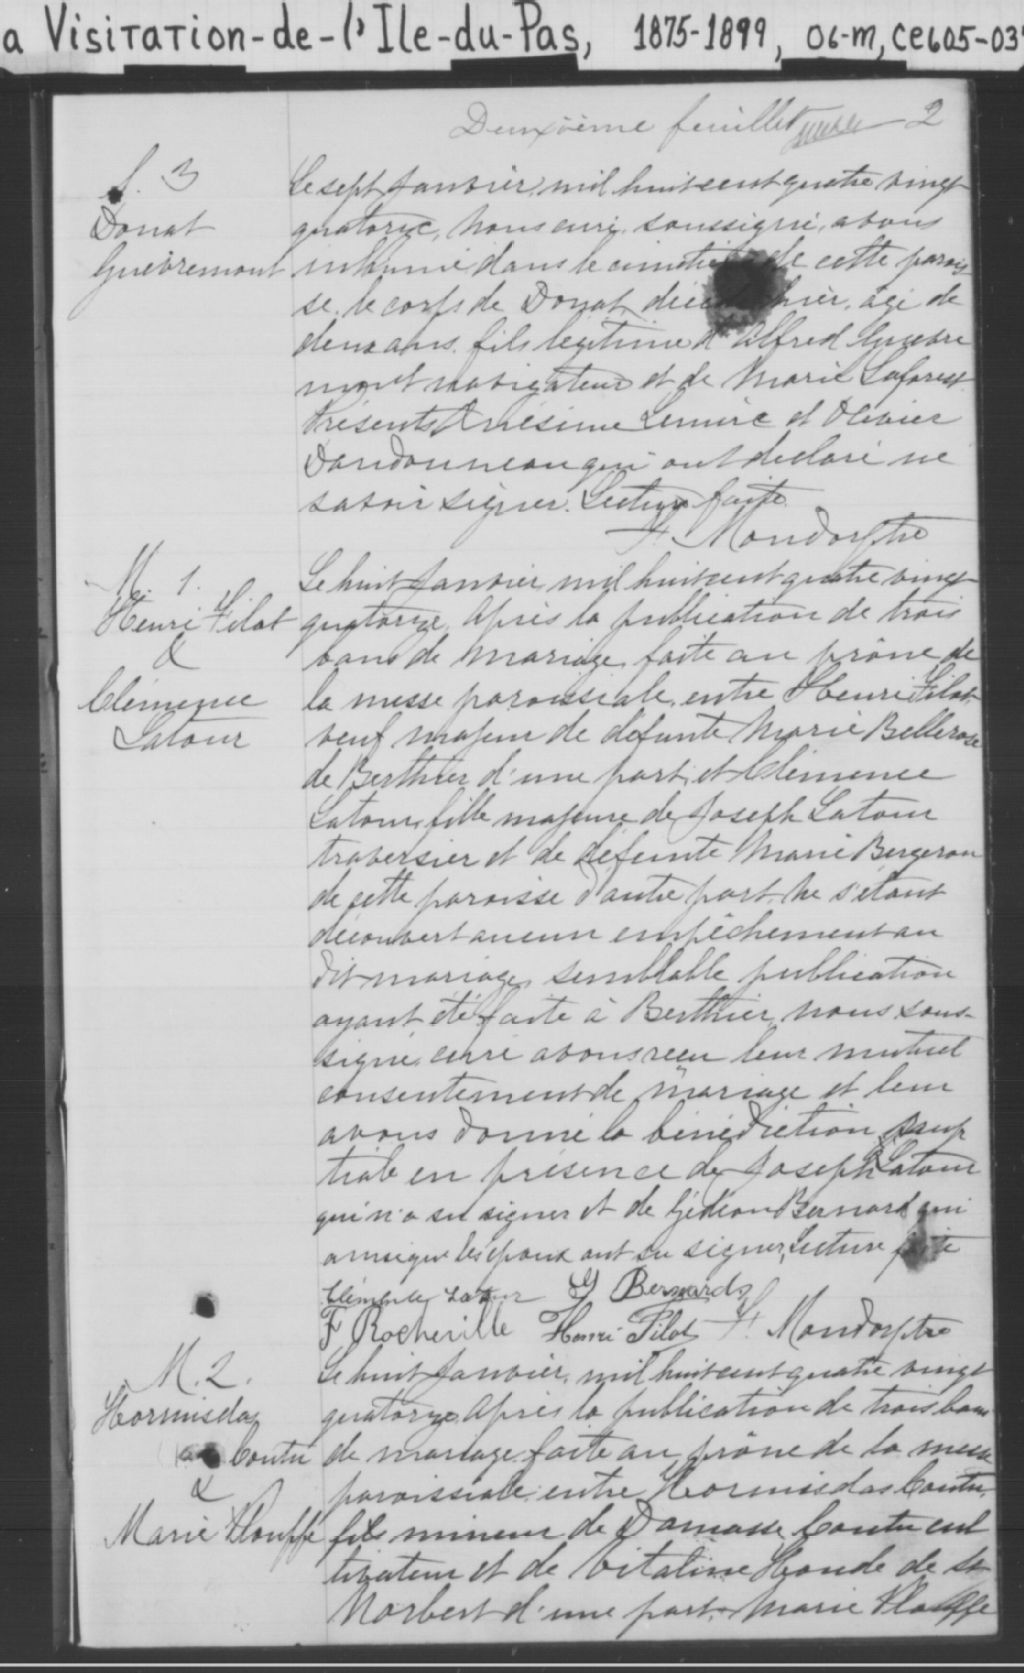 a Visitation-de-l'Ile-du-Pas, 1875-1899, 06-m, CE605-03
Deuxième feuillet 2
S. 3
Donat
Guèvremont
Le sept Janvier, mil huit cent quatre vingt
quatorze, Nous curé soussigné, avons
inhumé dans le cimetière de cette parois
se, le corps de Donat, décédé hier, agé de
deux ans, fils légitime d'Alfred Guèvre
mont navigateur et de Marie Laforest
Présents Onésime Lemire et Olivier
Dandonneau qui ont déclaré ne
savoir signer. Lecture faite
F. Mondor Ptre
M. 1.
Henri Pilot
&
Clémence
Latour
Le huit Janvier mil huit cent quatre vingt
quatorze, après la publication de trois
bans de mariage faite au prône de
la messe paroissiale, entre Henri Pilot
veuf majeur de défunte Marie Bellerose
de Berthier d'une part, et Clémence
Latour, fille majeure de Joseph Latour
traversier et de défunte Marie Bergeron
de cette paroisse d'autre part. Ne s'étant
découvert aucun empêchement au
dit mariage, semblable publication
ayant été faite à Berthier, nous sous-
signé curé avons reçu leur mutuel
consentement de mariage et leur
avons donné la bénédiction nup
tiale en présence de Joseph Latour
qui n'a su signer et de Gédéon Bernard qui
ainsi que les époux ont su signer, Lecture faite
Clémence Latour G Bernard
F Rocheville Henri Pilot F. Mondor Ptre
M. 2.
Hormisdas
Coutu
&
Marie Plouffe
Le huit Janvier, mil huit cent quatre vingt
quatorze, après la publication de trois bans
de mariage faite au prône de la messe
paroissiale entre Hormisdas Coutu,
fils mineur de Damasse Coutu cul
tivateur et de Vitaline Houde de St
Norbert d'une part, Marie Plouffe